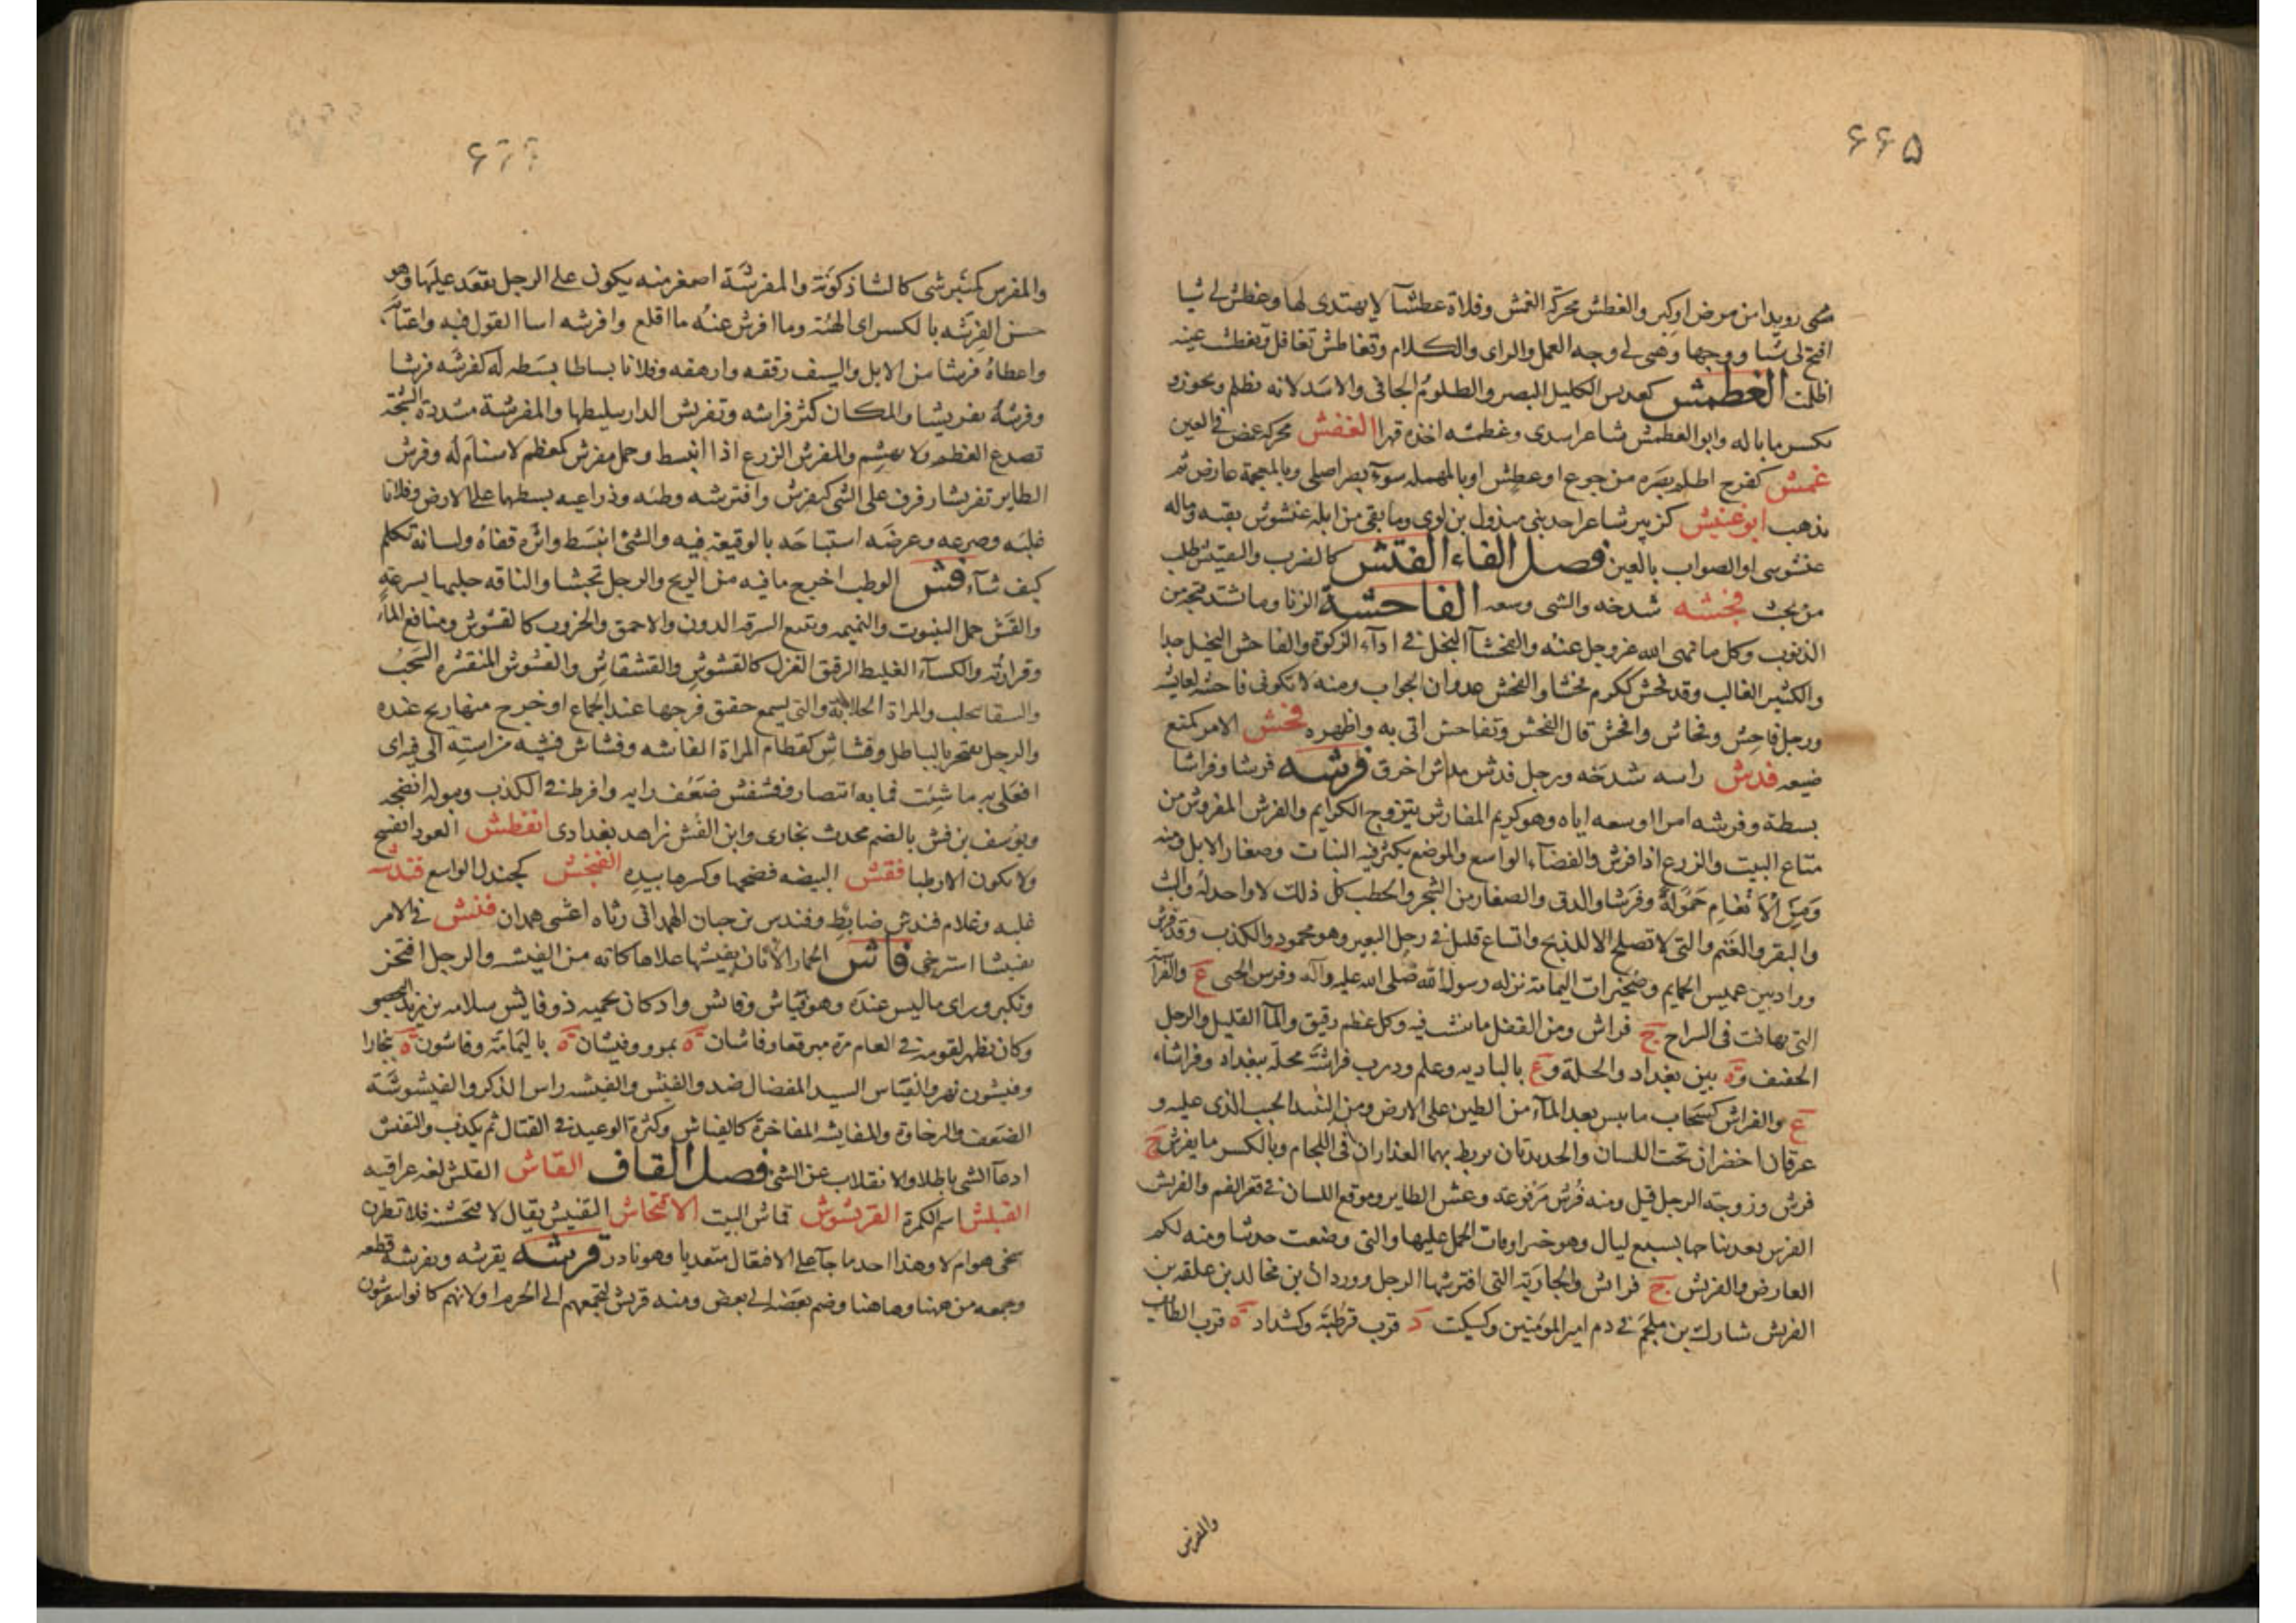 ۶۶۵
مشى رويدا من مرض او كبر والغطش محركة الغمش وفلاة غطشآ لا يهتدى لها وغطش لى شيا
افتح لى شيا ووجها وهى لى وجه العمل والراى والكلام وتغاطش تغافل وتغطشت عينه
اظلمت الغطمش كعدبس الكليل البصر والظلوم الجافى والاسد لانه يظلم ويجوز و
يكسر ما باله وابو الغطمش شاعر اسدى وغطمشه اخذه قهرا الغفش محركه غمص فى العين
غمش كفرح اظلم بصره من جوع او عطش او بالمهمله سوء بصر اصلى وبالمعجمة عارض ثم
يذهب ابو غنيش كزبير شاعر احد بنى مبذول بن لوى وما بقى من ابله غنشوش بقيه وماله
عنشوسى او الصواب بالعين فصل الفاء الفتش كالضرب والتفتيش طلب
من بحث فجشه شدخه والشى وسعه الفاحشة الزنا وما شتد قبحه من
الذنوب وكل ما نهى الله عز وجل عنه والفحشآ البخل فى ادآء الزكوة والفاحش البخيل جدا
والكثير الغالب وقد فحش ككرم فحشا والفحش عدوان الجواب ومنه لا تكونى فاحشة لعايشه
ورجل فاحش وفحاش وافحش قال الفحش وتفاحش اتى به واظهره فخش الامر كمنع
ضيعه فدش راسه شدخه ورجل فدش مداش اخرق فرشه فرشا وفراشا
بسطة وفرشه امرا اوسعه اياه وهو كريم المفارش يتزوج الكرايم والفرش المفروش من
متاع البيت والزرع اذا فرش والفضآء الواسع والموضع يكثر فيه النبات وصغار الابل ومنه
ومن الانعام حمولة وفرشا والدق والصغار من الشجر والحطب كل ذلك لا واحد له
والبقر والغنم والتى لا تصلح الا للذبح واتساع قليل فى رجل البعير وهو محمود والكذب وقد فرش
وواد بين عميس الحمايم وصخيرات اليمامة نزله رسول الله صلى الله عليه وآله وفرس الحبى ع والفراشة
التى تهافت فى السراج ج فراش ومن القفل ما ينشب فيه وكل عظم رقيق والمآ القليل والرجل
الخفيف وه بين بغداد والحلة وع بالباديه وعلم ودرب فراشة محلة ببغداد وفراشاء
ع والفراش كسحاب ما يبس بعد المآء من الطين على الارض ومن النبيذ الحبب الذى عليه و
عرقان اخضران تحت اللسان والحديدتان يربط بهما العذاران فى اللجام وبالكسر ما يفرش ج
فرش وزوجة الرجل قيل ومنه فرش مرفوعة وعش الطاير وموقع اللسان فى قعر الفم والفريش
الفرس بعد نتاجها بسبع ليال وهو خير اوقات الحمل عليها والتى وضعت حديثا ومنه لكم
العارض والفريش ج فرائش والجارية التى افترشها الرجل ووردان بن مخالد بن علقمه بن
الفريش شارك بن ملجم فى دم امير المؤمنين وكسكيت د قرب قرطبة وكشداد ه قرب الطايف
والمفرش
۶۶۶
والمفرش كمنبر شى كالشاذكونة والمفرشة اصغر منه يكون على الرحل يقعد عليها وهو
حسن الفرشه بالكسر اى الهيئة وما افرش عنه ما اقلع وافرشه اساا القول فيه واغتابه
واعطاه فرشا من الابل والسيف رققه وارهقه وفلانا بساطا بسطه له كفرشه فرشا
وفرشه تفريشا والمكان كثر فراشه وتفريش الدار تبليطها والمفرشة مشددة الشجة
تصدع العظم ولا تهشم والمفرش الزرع اذا انبسط وجمل مفرش كمعظم لا سنام له وفرش
الطاير تفريشا رفرف على الشى كتفرش وافترشه وطئه وذراعيه بسطهما على الارض وفلانا
غلبه وصرعه وعرضه استباحه بالوقيعة فيه والشئ انبسط واثره قفاه ولسانه تكلم
كيف شآء فش الوطب اخرج ما فيه من الريح والرجل تجشا والناقه حلبها بسرعة
والفش حمل الينبوت والنميمه وتتبع السرقه الدون والاحمق والخروب كالفشوش ومنافع المآء
وقرارته والكسآء الغليظ الرقيق الغزل كالفشوش والفشفاش والفشوش المنقشره السحب
والسقا يحلب والمراة الحلابة والتى يسمع حقيق فرجها عند الجماع او خرج منها ريح عنده
والرجل يفتخر بالباطل وفشاش كقطام المراة الفاشه وفشاش فشيه من استه الى فيه اى
افعلى به ما شئت فما به انتصار وفشفش ضعف رايه وافرط فى الكذب وببوله انضحه
ويوسف بن فش بالضم محدث بخارى وابن الفش زاهد بغدادى انفطش العود انفسخ
ولا يكون الا رطبا فقش البيضه فضخها وكسرها بيده الفنجش كجندل الواسع فندشه
غلبه وغلام فندش ضابط وفندس بن حيان الهمدانى رثاه اعشى همدان فنش فى الامر
تفنيشا استرخى فاش الحمار الاتان يفيشها علاها كانه من الفيشه والرجل افتخر
وتكبر وراى ما ليس عنده وهو فياش وفايش واد كان يحميه ذو فايش سلامه بن يزيد اليحصبى
وكان يظهر لقومه فى العام مرة مبرقعا وفاشان ه بمرو وفيشان ه باليمامة وفاشون ه بخارا
وفيشون نهر والفياش السيد المفضال ضد والفيش والفيشه راس الذكر والفيشوشة
الضعف والرخاوة والمفايشه المفاخرة كالفياش وكثرة الوعيد فى القتال ثم يكذب والتفيش
ادعآ الشى باطلا والانقلاب عن الشى فصل القاف القاش القلش لغه عراقيه
القبلش اسم الكمرة القربشوش قماش البيت الاقتحاش التفتيش يقال لاقتحشنه فلانظرن
سخى هو ام لا وهذا احد ما جآ على الافتعال متعديا وهو نادر قرشه يقرشه ويقرشه قطعه
وجمعه من ههنا وهاهنا وضم بعضه الى بعض ومنه قريش لتجمعهم الى الحرم او لانهم كانوا يتقرشون